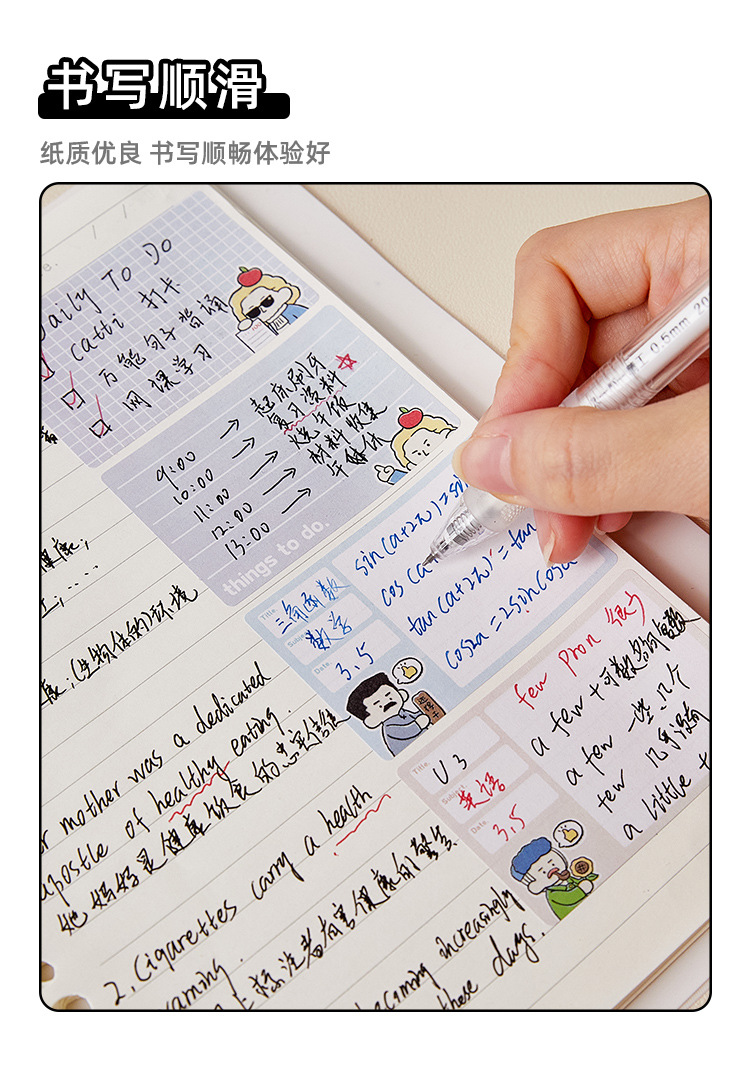 书写顺滑
纸质优良 书写顺畅体验好
Daily To Do
catti 打卡
万能句子背诵
网课学习
9:00 → 起床刷牙
10:00 → 复习资料
11:00 → 烧午饭
12:00 → 材料收集
13:00 → 午休
things to do.
Title.
三角函数
Subject.
数学
Date.
3.5
sin(a+2π)=sin
cos(a
tan(a+2π)=tan
cos2a=2sin cosa
Title.
U3
Subject.
英语
Date.
3.5
few pron 很少
a few + 可数名词复数
a few 一些,几个
few 几乎没有
a little +
健康;
生物体的)环境
mother was a dedicated
apostle of healthy eating.
她妈妈是健康饮食的忠实信徒
2. Cigarettes carry a health
warning.
becoming increasingly
these days.
T 0.5mm 20